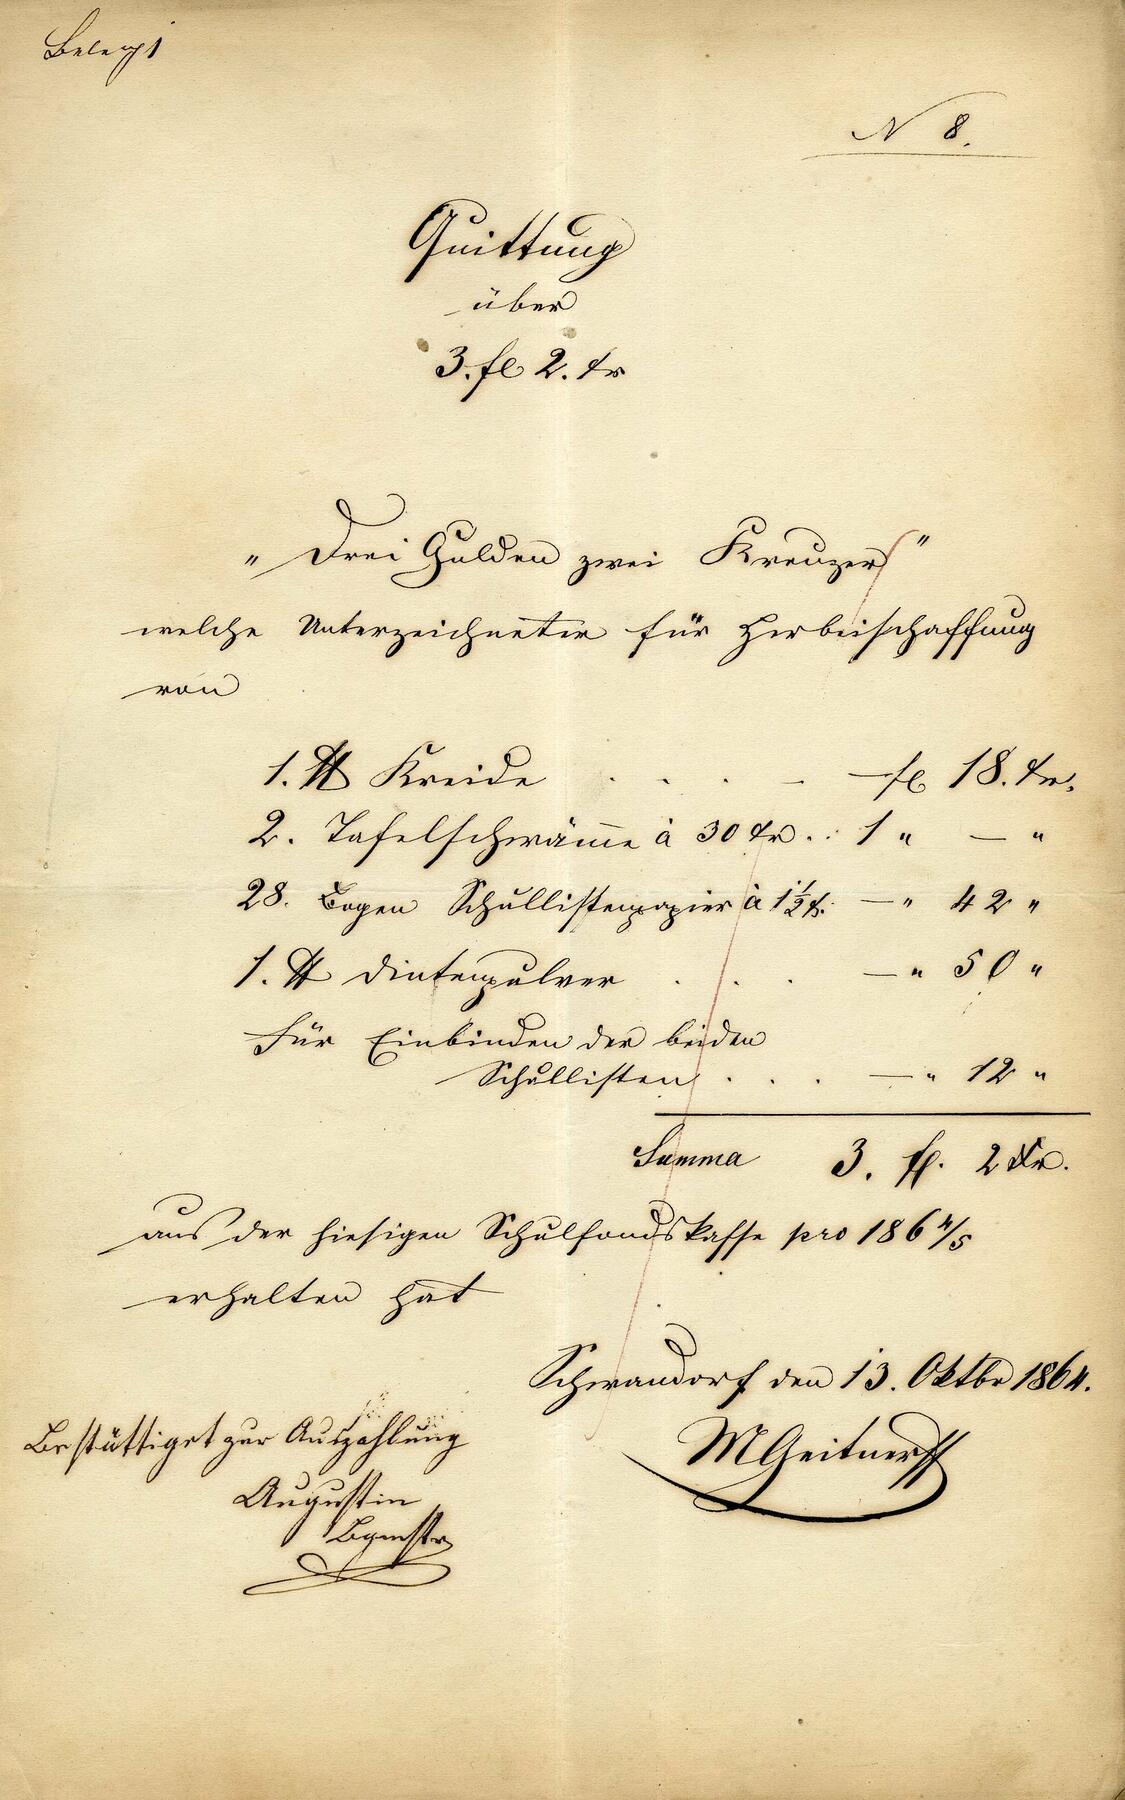 Beleg 1
N 8.
Quittung
über
3. fl 2. kr
„ Drei Gulden zwei Kreuzer "
welche Unterzeichneter für Herbeischaffung
von
1. ℔ Kreide . . . . — fl 18. kr.
2. Tafelschwämme à 30 kr . . 1 " — "
28. Bogen Schullistenpapier à 1½ k. — " 42 "
1. ℔ Dintenpulver . . . — " 50 "
Für Einbinden der beiden
Schullisten . . . — " 12 "
Summa 3. fl. 2 Kr.
aus der hiesigen Schulfondskasse pro 186 4/5
erhalten hat
Schwandorf den 13. Oktbr 1864.
Bestättiget zur Auszahlung
MGeitner
Augustin
Bgmstr